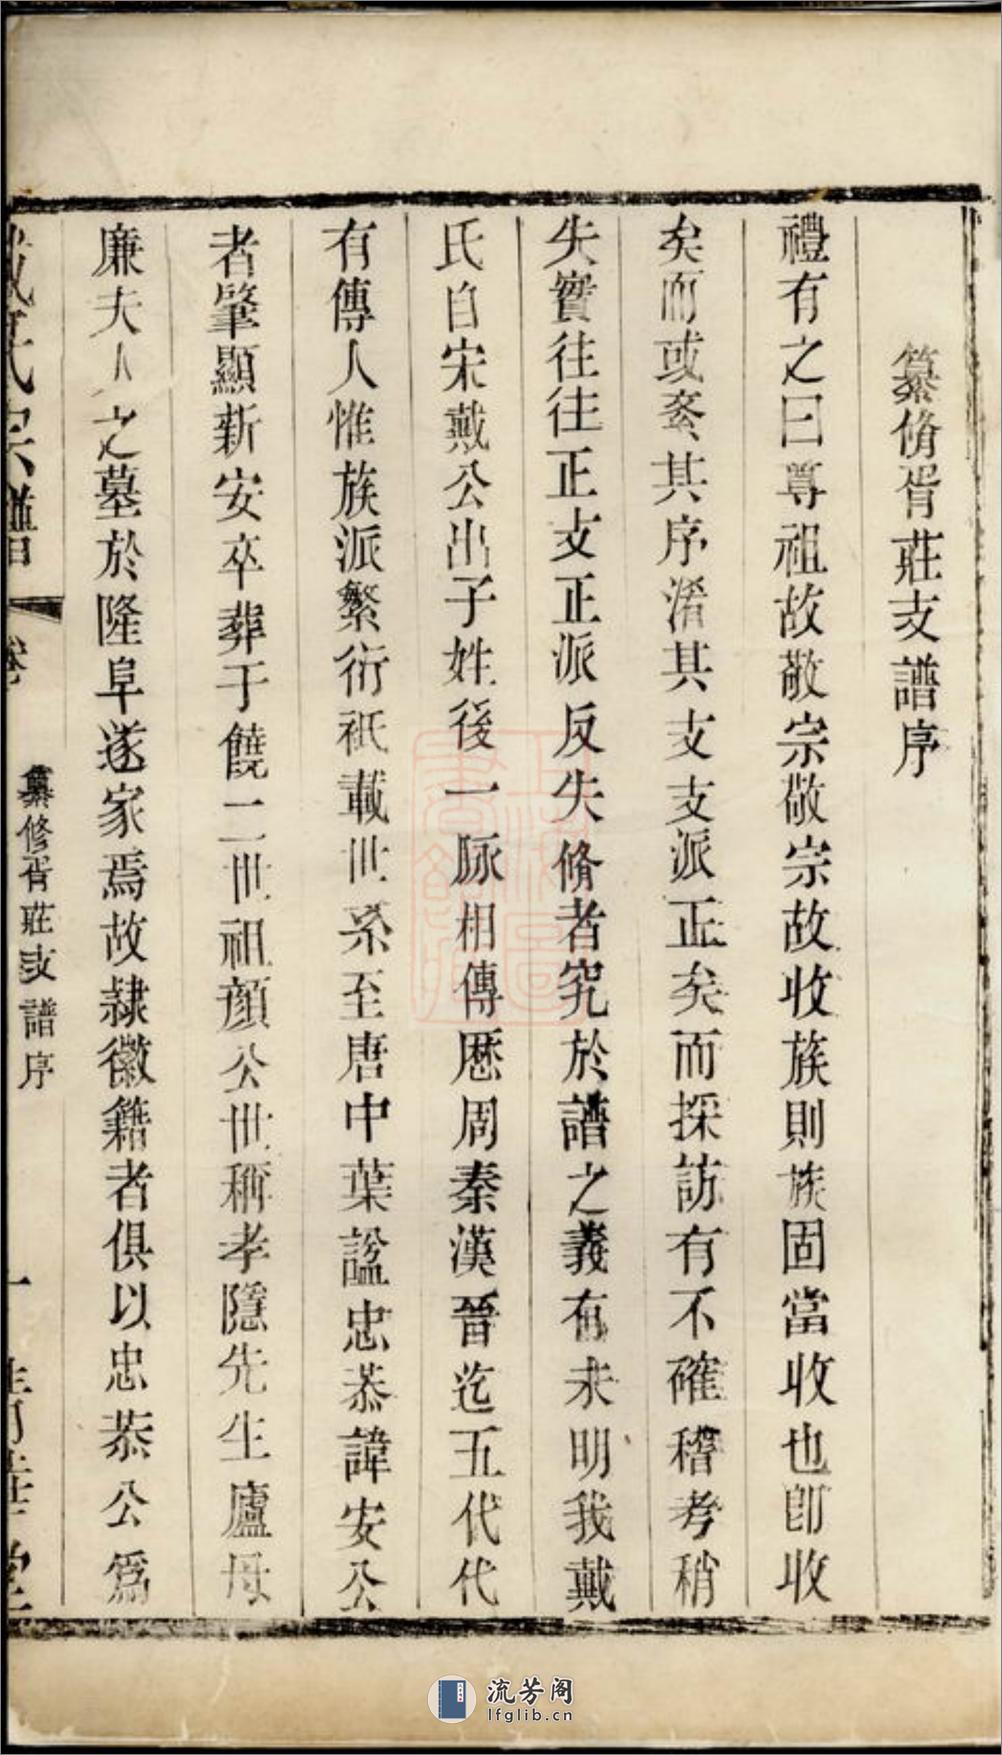 纂脩胥莊支譜序
禮有之曰尊祖故敬宗敬宗故收族則族固當收也卽收
矣而或紊其序淆其支支派正矣而採訪有不確稽考稍
失實往往正支正派反失脩者究於譜之義有未明我戴
氏自宋戴公出子姓後一脉相傳厯周秦漢晉迄五代代
有傳人惟族派繁衍祇載世系至唐中葉諡忠恭諱安公
者肇顯新安卒葬于饒二世祖顔公世稱孝隱先生廬母
廉夫人之墓於隆阜遂家焉故隷徽籍者俱以忠恭公爲
戴氏宗譜
卷
纂修胥莊支譜序
一
流芳阁
lfglib.cn